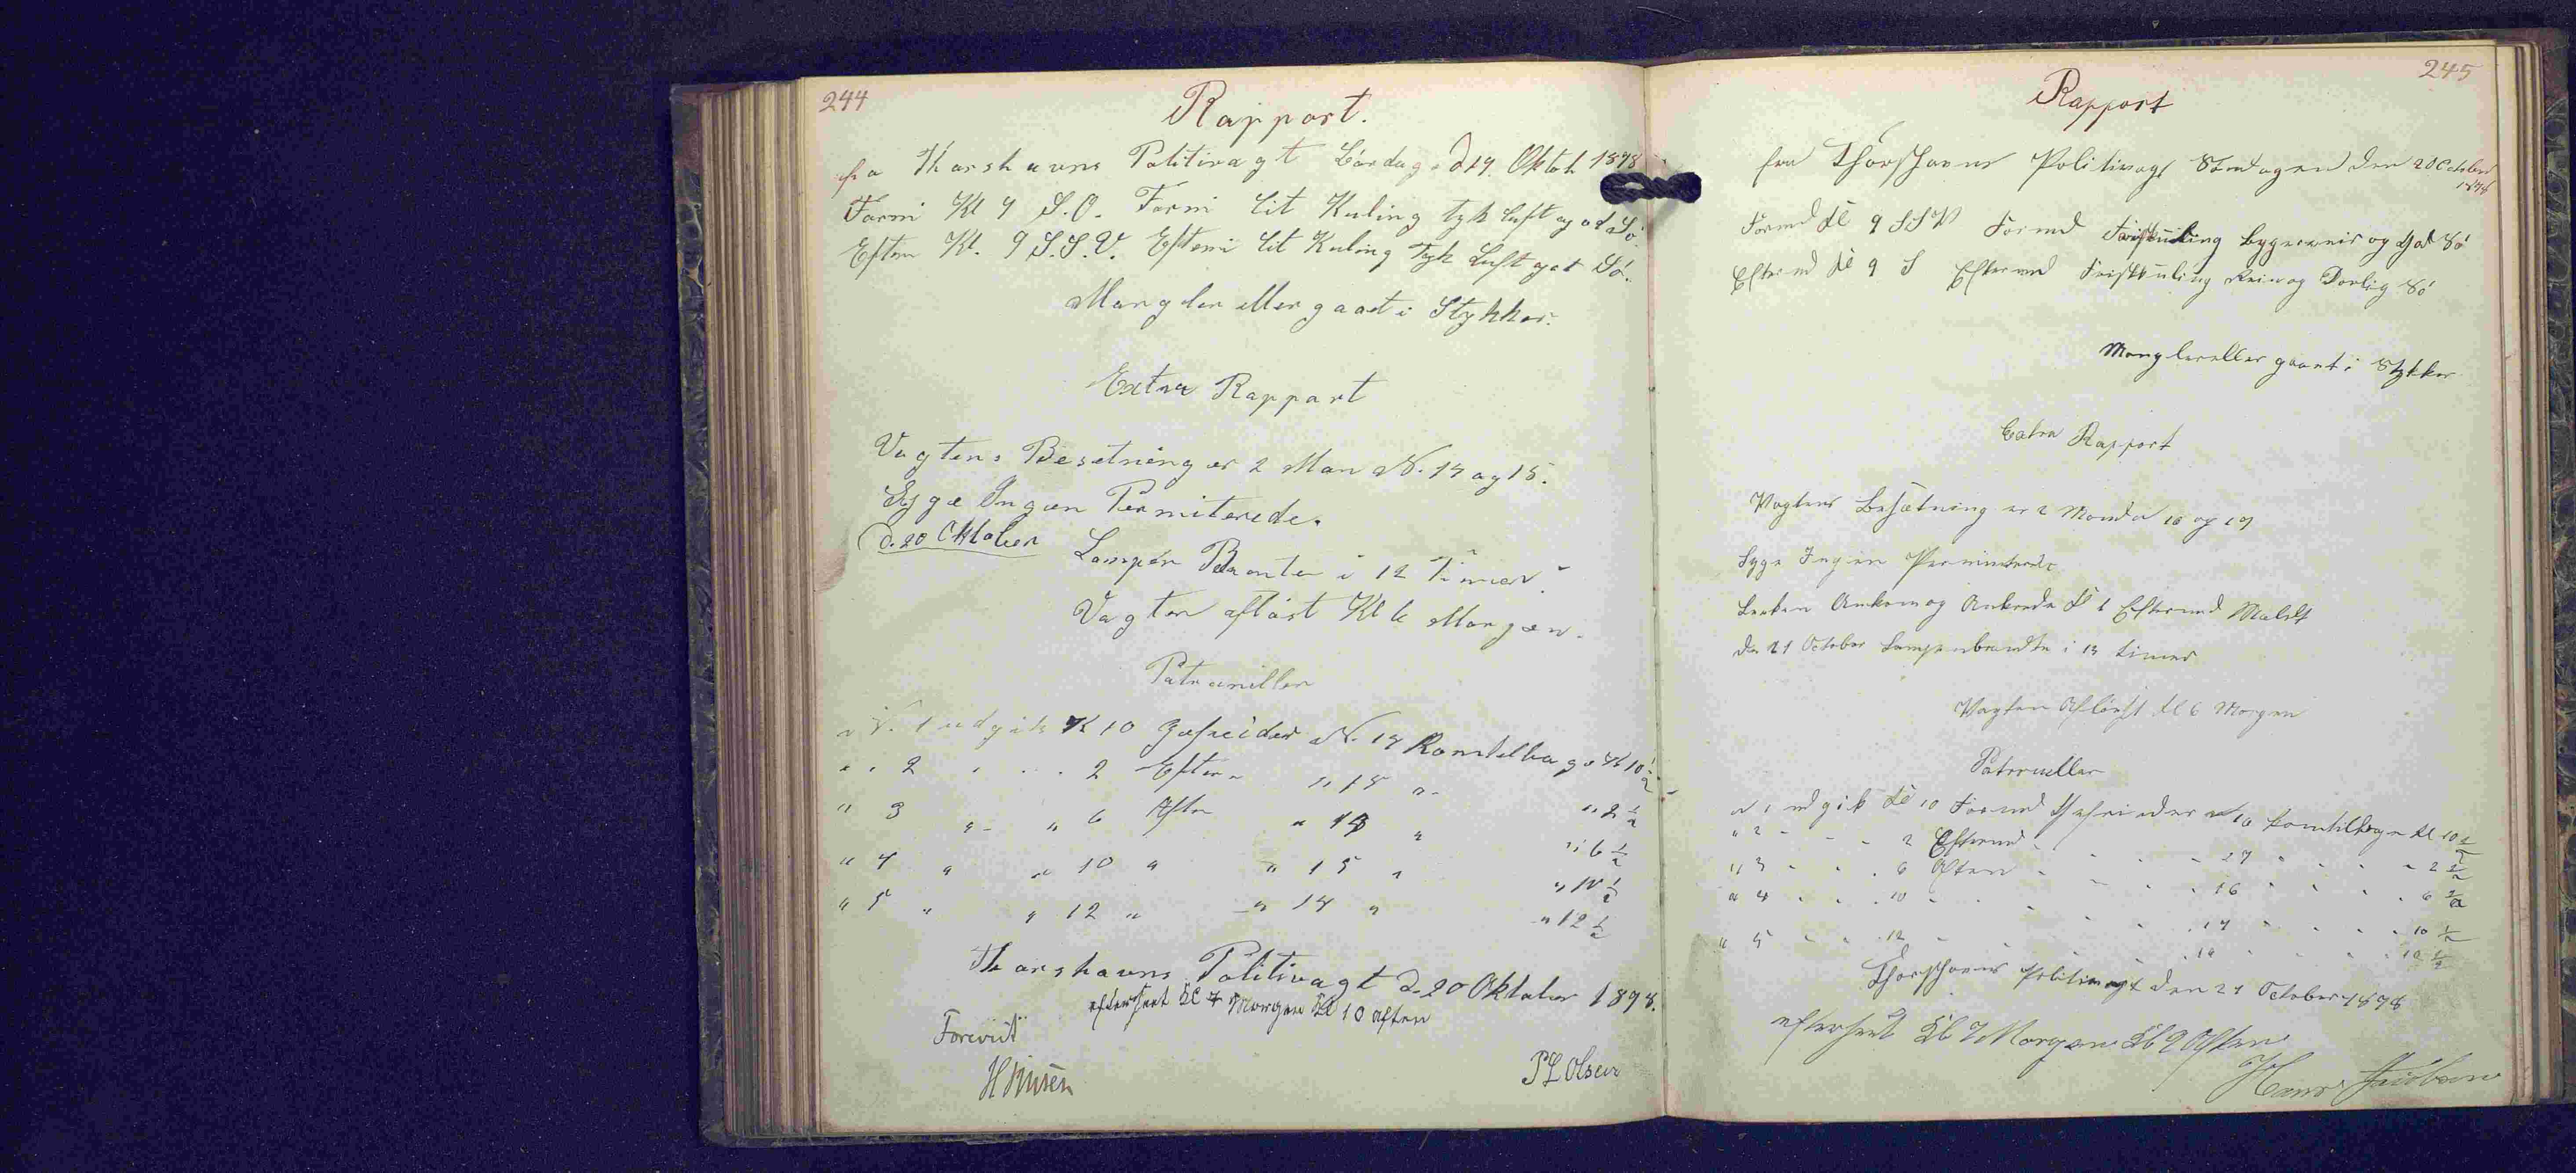 244
Rapport.
fra Thorshavns Politivagt Lördag d 19. Oktob 1898
Formi Kl 9 S.O. Formi lit Kuling tyk luft og od Sö.
Eftem Kl. 9 S.S.V. Eftemi lit Kuling Tyk Luft got Sö.
Mangler eller gaaet i Stykker.
Extra Rapport
Vagtens Besetning er 2 Man N. 14 og 15.
Syge Ingen Permiterede.
d. 20 Oktober
Lampen Brænte i 12 Timer.
Vagten aflöst Kl 6 Morgen.
Patrouiller
N. 1 udgik Kl 10 Gefreider N. 14 Komtilbage Kl 10 1/2
" " 2 " " " 2 Eftem " 15 " " 2 1/2
" 3 " " 6 Aften " 14 " " 6 1/2
" 4 " " 10 " " 15 " " 10 1/2
" 5 " " 12 " " 14 " " 12 1/2
Thorshavns Politivagt d. 20 Oktober 1898.
efterseet Kl 7 Morgen Kl 10 aften
Forevist
P L Olsen
245
Rapport
fra Thorshavns Politivagt Söndagen den 20 October
1898
Formd Kl 9 SSV Formd Friskkuling bygeveir og God Sö
Eftermd Kl 9 S Eftermd Friskkuling Rein og Dorlig Sö
Mangler eller gaaet i Stykker
Extra Rapport
Vagtens Besætning er 2 Mand N 16 og 17
Syge Ingen Perminterede
Ankom og Ankrede Kl 1 Eftermd
den 21 October Lampen brendte i 13 timer
Vagten Aflöst Kl 6 Morgen
Patrouller
N 1 udgik Kl 10 Formd Gefreider N 16 komtilbage Kl 10 1/2
" 2 - - - 2 Eftermd - - - 17 - - - 2 1/2
" 3 - - - 6 Aften - - - 16 - - - 6 1/2
" 4 - - - 10 - - - 17 - - - 10 1/2
" 5 - - - 12 - - - 16 - - - 12 1/2
Thorshavns Politivagt den 21 October 1898
efterseet Kl 7 Morgen Kl 9 Aften
Hans Jacobsen